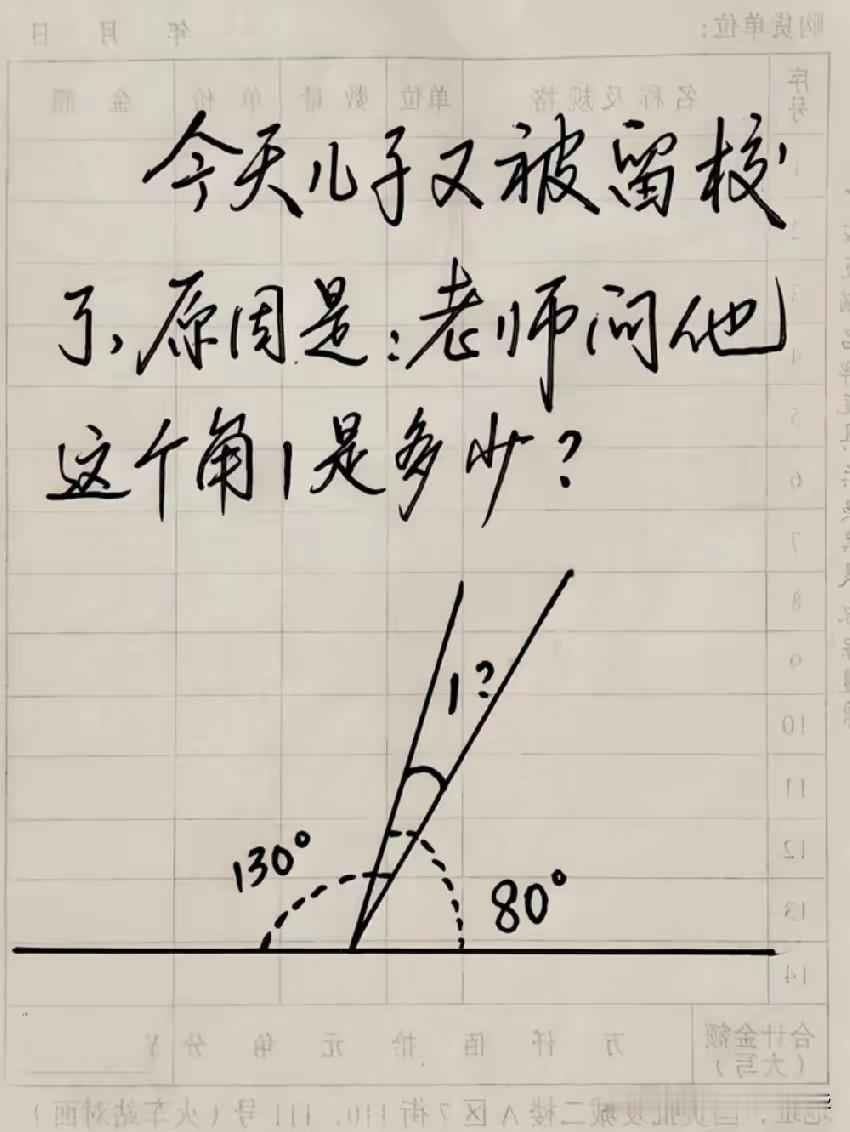 今天儿子又被留校
了,原因是:老师问他
这个角1是多少?
1?
130°
80°
购货单位:
年 月 日
序号
名称及规格
单位
数量
单价
金额
1
2
3
4
5
6
7
8
9
10
11
12
13
14
合计金额
(大写)
万 仟 佰 拾 元 角 分 ¥
城二楼A区7街110、111号(火车站对面)